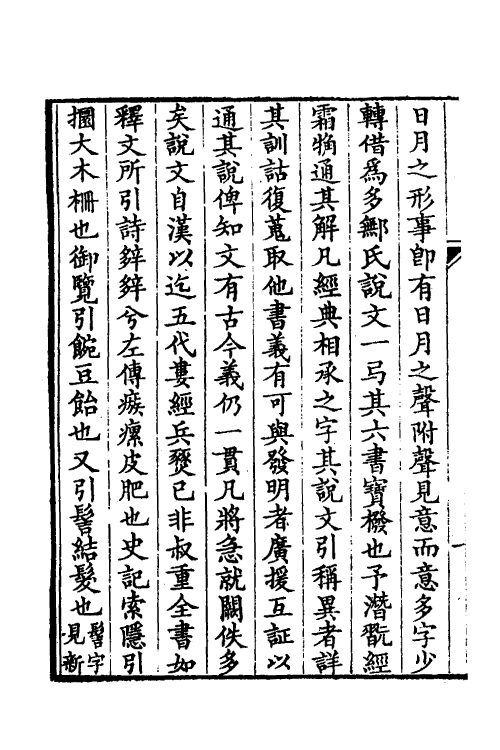 日月之形事卽有日月之聲附聲見意而意多字少
轉借爲多鄦氏說文一㢧其六書寶橃也予潛翫經
霜牕通其解凡經典相承之字其說文引稱異者詳
其訓詁復蒐取他書義有可與發明者廣援互証以
通其說俾知文有古今義仍一貫凡將急就闕佚多
矣說文自漢以迄五代婁經兵燹已非叔重全書如
釋文所引詩辤辤兮左傳瘯瘰皮肥也史記索隱引
棞大木柵也御覽引䬧豆飴也又引髻結髮也髻字見新